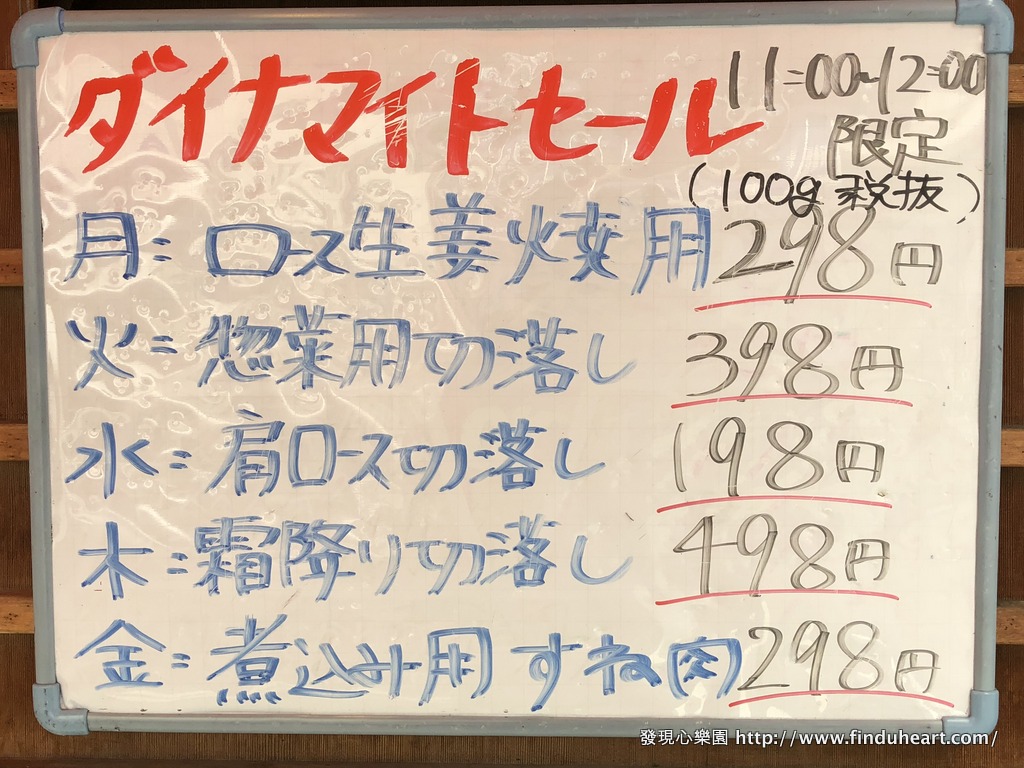 ダイナマイトセール 11:00~12:00
限定
(100g 税抜)
月:ロース生姜焼用 298円
火:惣菜用切落し 398円
水:肩ロース切落し 198円
木:霜降り切落し 498円
金:煮込み用 すね肉 298円
發現心樂園 http://www.finduheart.com/